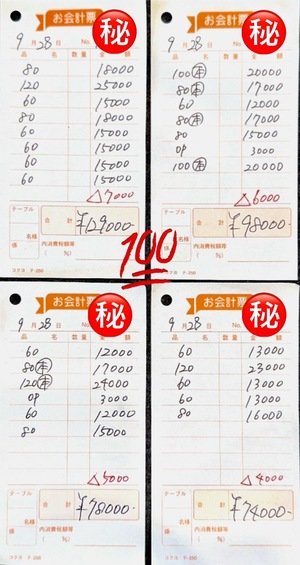 お会計票
秘
9月28日 No.
品名 数量 金額
80 18000
120 25000
60 15000
80 18000
60 15000
60 15000
60 15000
60 15000
△7000
テーブル
合計 ¥129000-
係
名様
内消費税額等
( %)
コクヨ テ-250
お会計票
秘
9月28日 No.
品名 数量 金額
100本 20000
80本 17000
60 12000
80本 17000
80 15000
OP 3000
100本 20000
△6000
テーブル
合計 ¥98000-
係
名様
内消費税額等
( %)
コクヨ テ-250
100
お会計票
秘
9月28日 No.
品名 数量 金額
60 12000
80本 17000
120本 24000
OP 3000
60 12000
80 15000
△5000
テーブル
合計 ¥78000-
係
名様
内消費税額等
( %)
コクヨ テ-250
お会計票
秘
9月28日 No.
品名 数量 金額
60 13000
120 23000
60 13000
60 13000
80 16000
△4000
テーブル
合計 ¥74000-
係
名様
内消費税額等
( %)
コクヨ テ-250